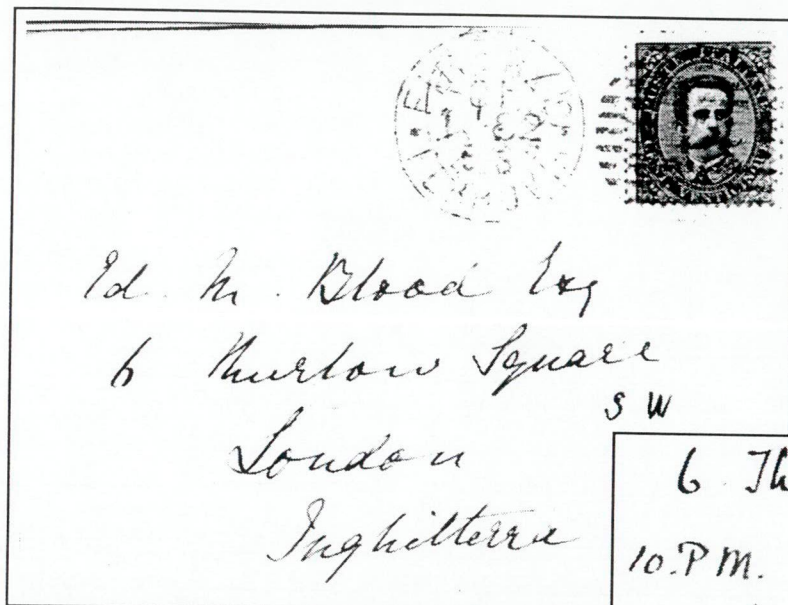 82
Ed. M. Blood Esq
6 Thurlow Square
S W
London
Inghilterra
6 Th
10.P.M.